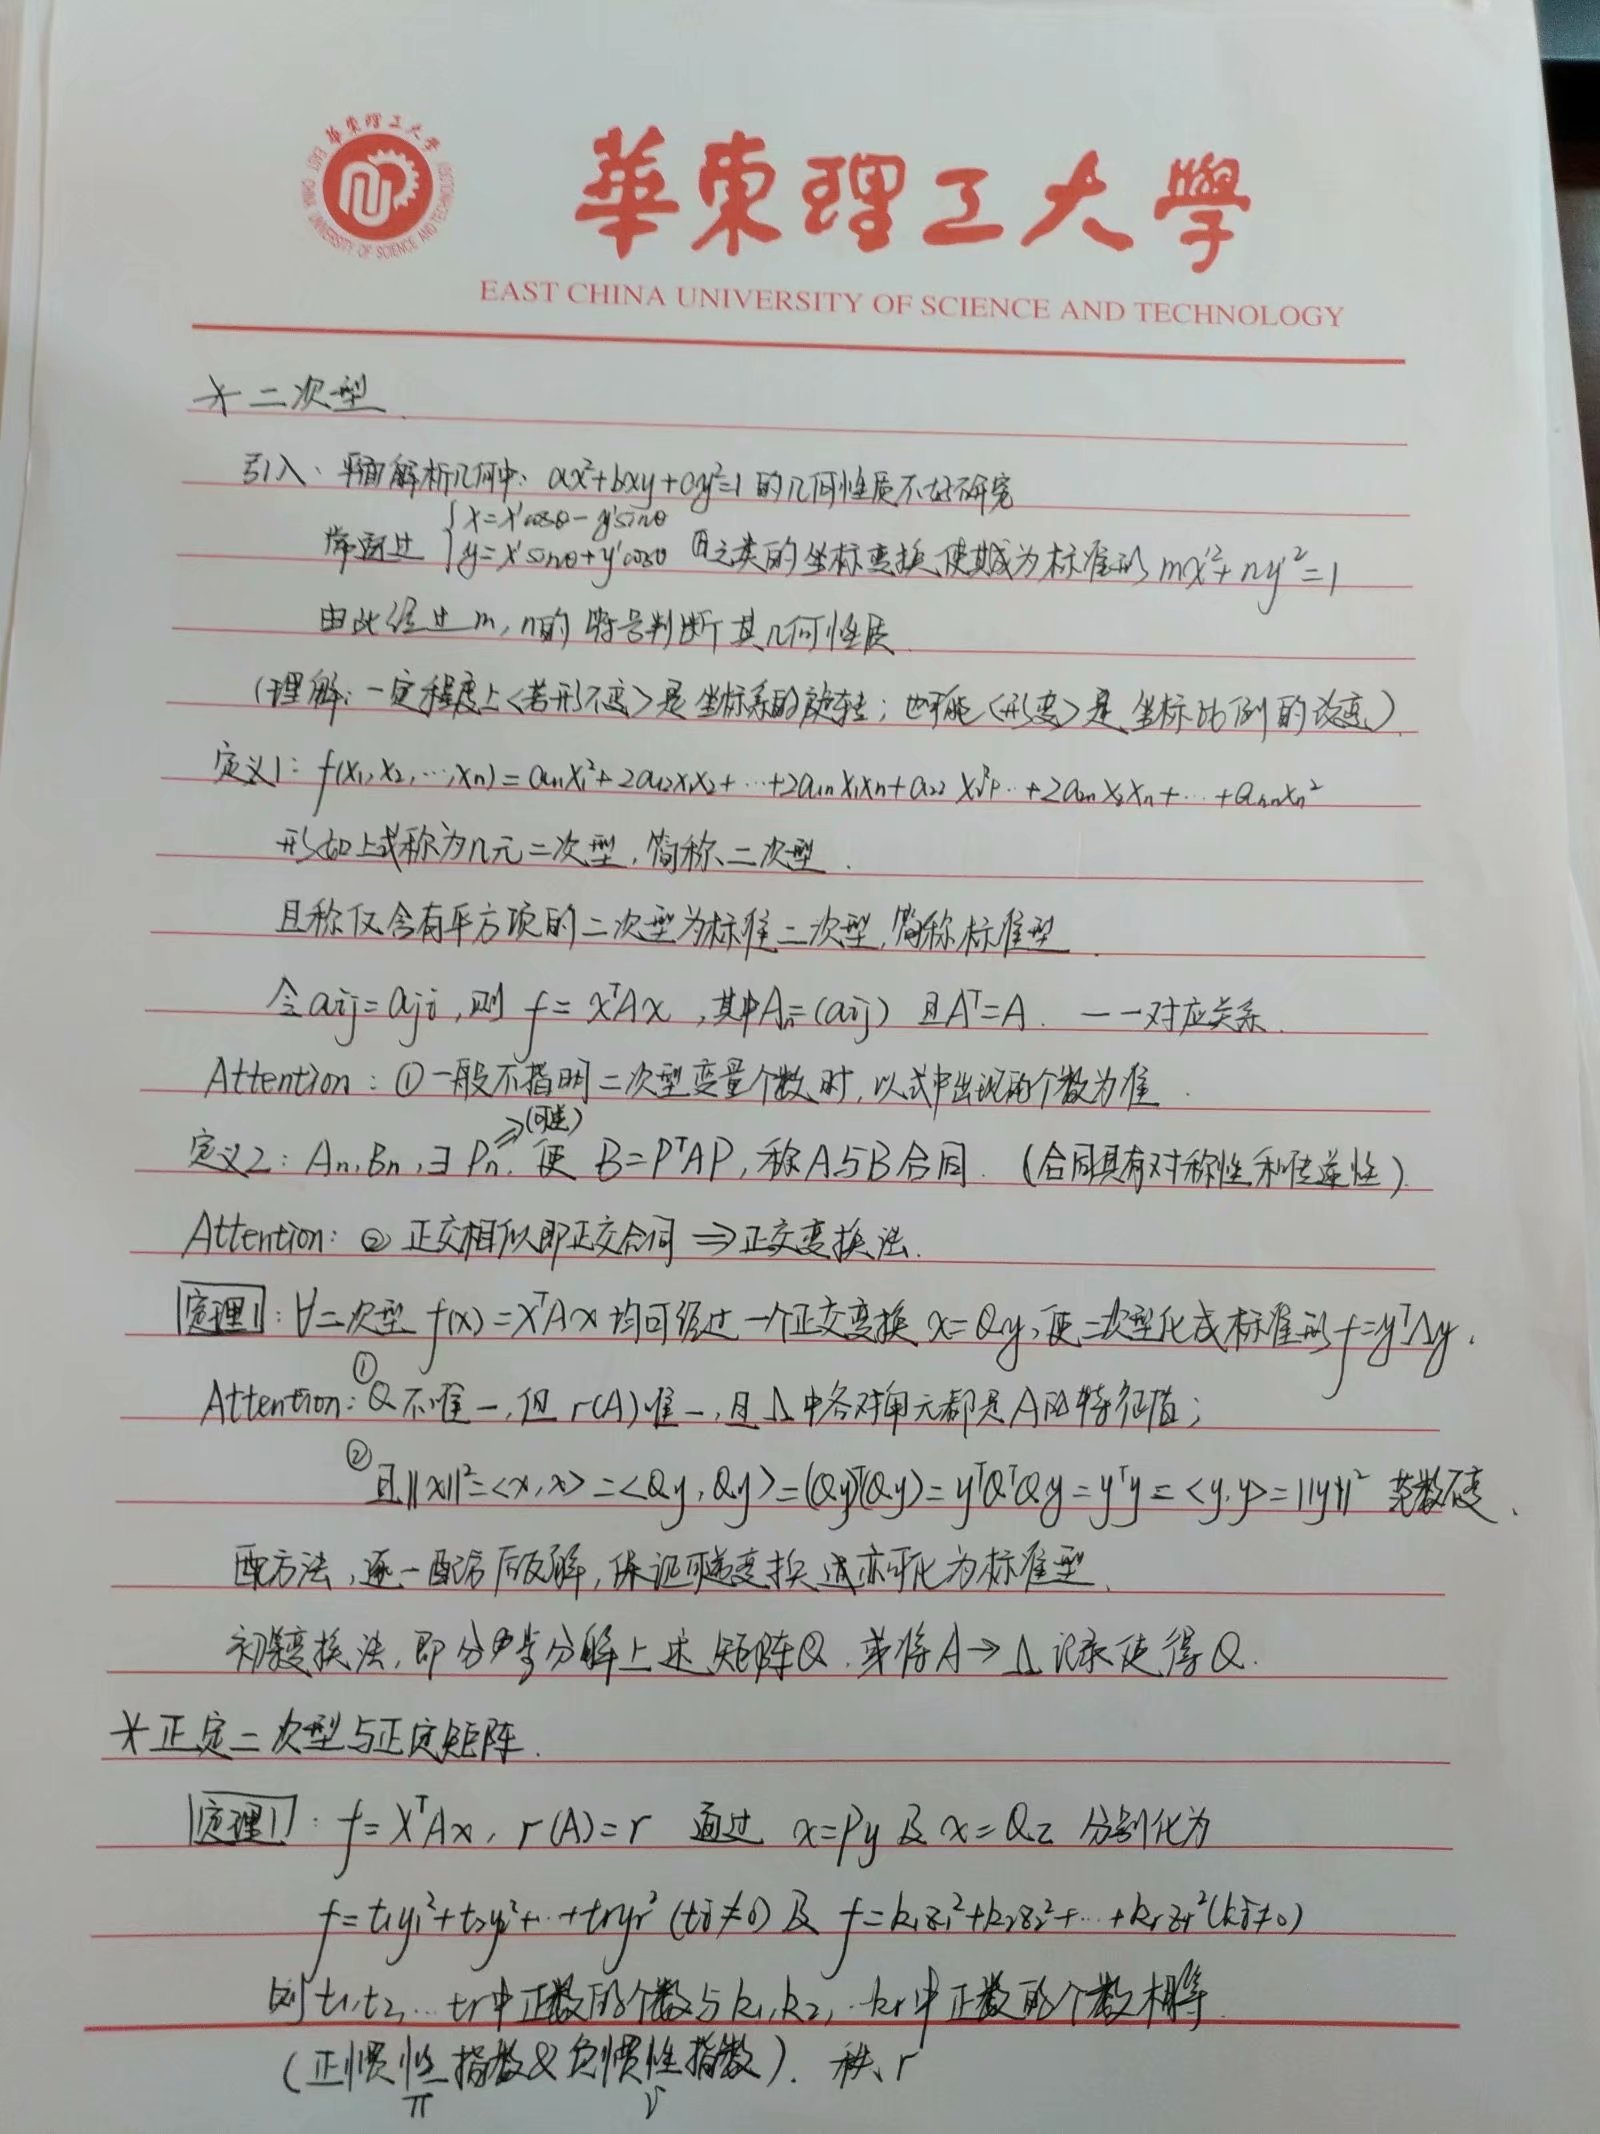 華東理工大學
EAST CHINA UNIVERSITY OF SCIENCE AND TECHNOLOGY
華東理工大學
EAST CHINA UNIVERSITY OF SCIENCE AND TECHNOLOGY
* 二次型.
引入、平面解析几何中: ax²+bxy+cy²=1 的几何性质不好研究
常通过 {x=x'cosθ-y'sinθ
y=x'sinθ+y'cosθ 之类的坐标变换,使其成为标准形 mx'²+ny'²=1
由此经过 m, n的符号判断其几何性质.
(理解: 一定程度上<若形不变>是坐标系的旋转; 也可能<形变>是坐标比例的改变).
定义1: f(x₁,x₂,…,xn)=a₁₁x₁²+2a₁₂x₁x₂+…+2a₁nx₁xn+a₂₂x₂²+…+2a₂nx₂xn+…+annxn²
形如上式称为n元二次型,简称二次型.
且称仅含有平方项的二次型为标准二次型,简称标准型.
令aij=aji,则 f=xᵀAx,其中An=(aij) 且Aᵀ=A. 一一对应关系.
Attention: ①一般不指明二次型变量个数时,以式中出现的个数为准.
⇒(可逆)
定义2: An,Bn,∃Pn,使 B=PᵀAP,称A与B合同. (合同具有对称性和传递性).
Attention: ② 正交相似即正交合同⇒正交变换法.
定理1: ∀二次型 f(x)=xᵀAx均可经过一个正交变换 x=Qy,使二次型化成标准形f=yᵀΛy.
Attention: ①Q不唯一,但 r(A)唯一,且Λ中各对角元都是A的特征值;
②且||x||²=<x,x>=<Qy,Qy>=(Qy)ᵀ(Qy)=yᵀQᵀQy=yᵀy=<y,y>=||y||² 范数不变.
配方法,逐一配方后反解,保证可逆变换 亦可化为标准型.
初等变换法,即分步分解上述矩阵Q.或将A→Λ记录使得Q.
* 正定二次型与正定矩阵.
定理1: f=xᵀAx, r(A)=r 通过 x=Py 及 x=Qz 分别化为
f=t₁y₁²+t₂y₂²+…+tryr² (ti≠0) 及 f=k₁z₁²+k₂z₂²+…+krzr²(ki≠0)
则t₁,t₂,…tr中正数的个数与k₁,k₂,…kr中正数的个数相等.
(正惯性指数&负惯性指数). 秩r
π ν